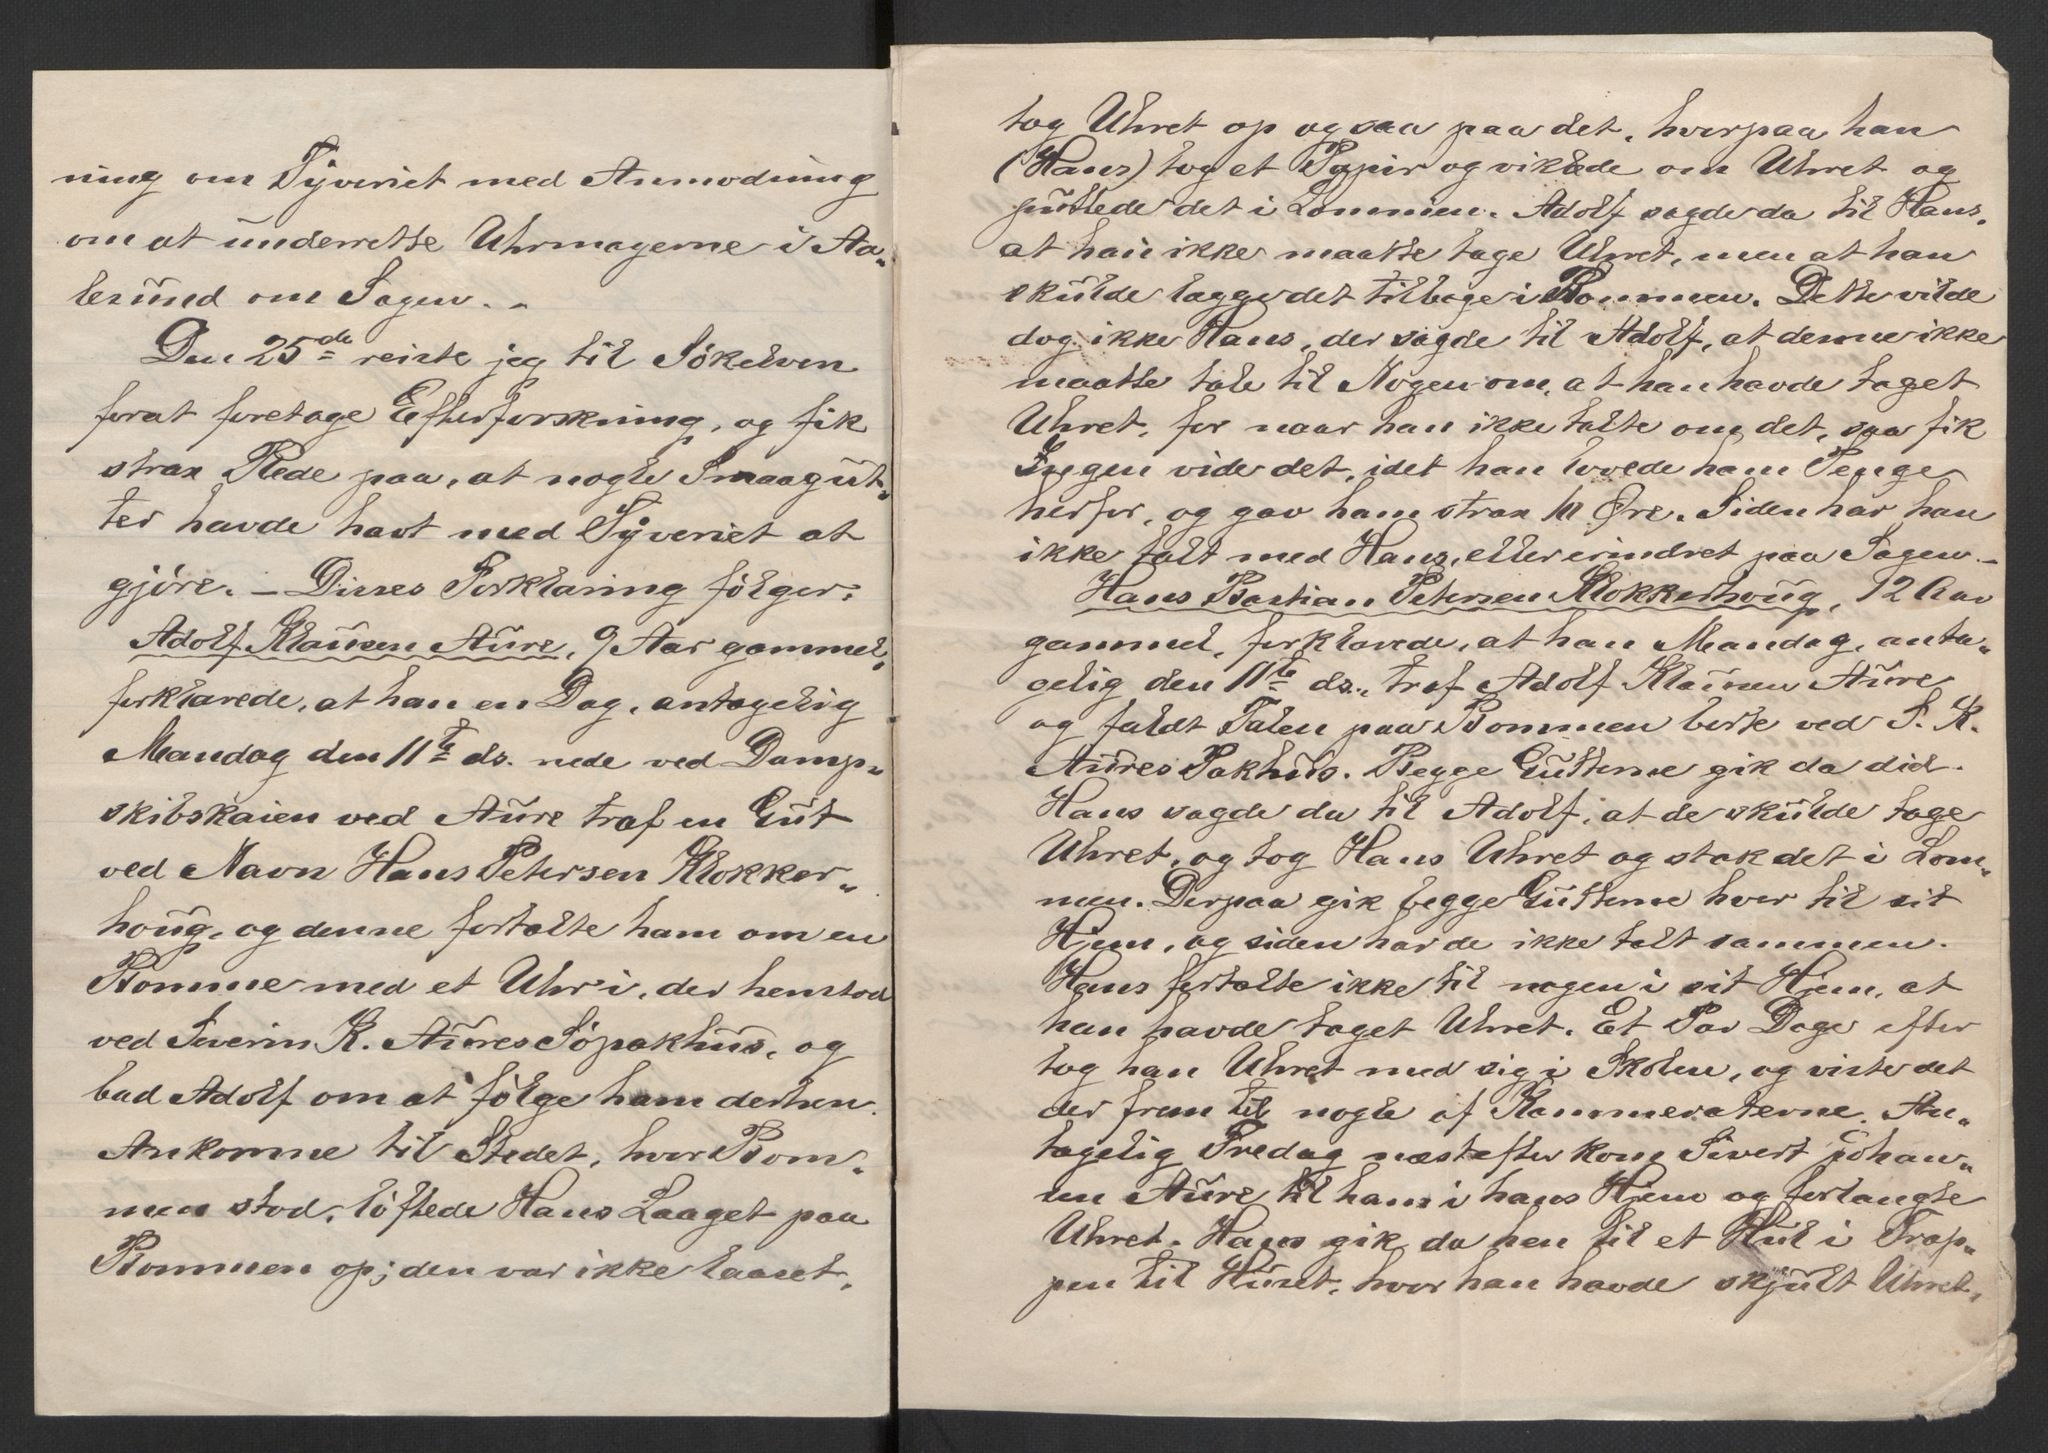 ning om Tyveriet med Anmodning
om at underrette Uhrmagerne i Aa„
lesund om Sagen. –
Den 25de reiste jeg til Sökelven
forat foretage Efterforskning, og fik
strax Rede paa, at nogle Smaagut„
ter havde havt med Tyveriet at
gjöre. – Disses Forklaring fölger:
Adolf Klausen Aure, 9 Aar gammel,
forklarede, at han en Dag, antagelig
Mandag den 11te ds. nede ved Damp„
skibskaien ved Aure traf en Gut
ved Navn Hans Petersen Klokker„
houg, og denne fortalte ham om en
Bomme med et Uhr i, der henstod
ved Severin K. Aures Söpakhus, og
bad Adolf om at fölge ham derhen.
Ankomne til Stedet, hvor Bom„
men stod, löftede Hans Laaget paa
Bommen op; den var ikke laaset.
tog Uhret op og saa paa det, hvorpaa han
(Hans) tog et Papir og viklede om Uhret og
puttede det i Lommen. Adolf sagde da til Hans,
at han ikke maatte tage Uhret, men at han
skulde lægge det tilbage i Bommen. Dette vilde
dog ikke Hans, der sagde til Adolf, at denne ikke
maatte tale til Nogen om, at han havde taget
Uhret, for naar han ikke talte om det, saa fik
Ingen vide det, idet han lovede ham Penge
herfor, og gav ham strax 10 Øre. Siden har han
ikke talt med Hans, eller erindret paa Sagen. –
Hans Bastian Petersen Klokkerhoug, 12 Aar
gammel, forklarede, at han Mandag, anta„
gelig den 11te ds., traf Adolf Klausen Aure
og faldt Talen paa Bommen borte ved S. K.
Aures Pakhus. Begge Gutterne gik da did.
Hans sagde da til Adolf, at de skulde tage
Uhret, og tog Hans Uhret og stak det i Lom„
men. Derpaa gik begge Gutterne hver til sit
Hjem, og siden har de ikke talt sammen.
Hans fortalte ikke til nogen i sit Hjem, at
han havde taget Uhret. Et Par Dage efter
tog han Uhret med sig i Skolen, og viste det
der frem til nogle af Kammeraterne. An„
tagelig Fredag næstefter kom Sivert Johan„
sen Aure til ham i hans Hjem og forlangte
Uhret. Hans gik da hen til et Hul i Trap„
pen til Huset, hvor han havde skjult Uhret,